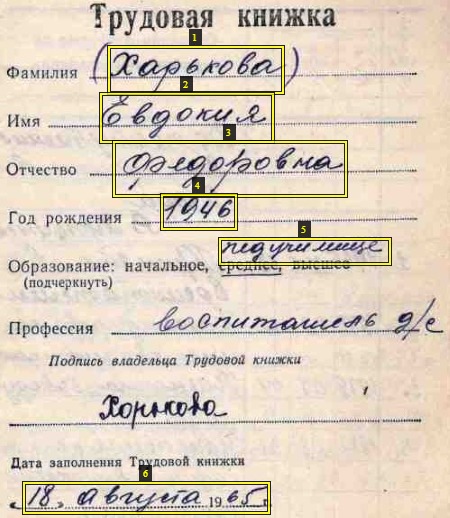 Трудовая книжка
Фамилия (Харькова)
Имя Евдокия
Отчество Федоровна
Год рождения 1946
педучилище
Образование: начальное, среднее, высшее
(подчеркнуть)
Профессия воспитатель д/с
Подпись владельца Трудовой книжки
Харькова
Дата заполнения Трудовой книжки
„18" августа 1965г.